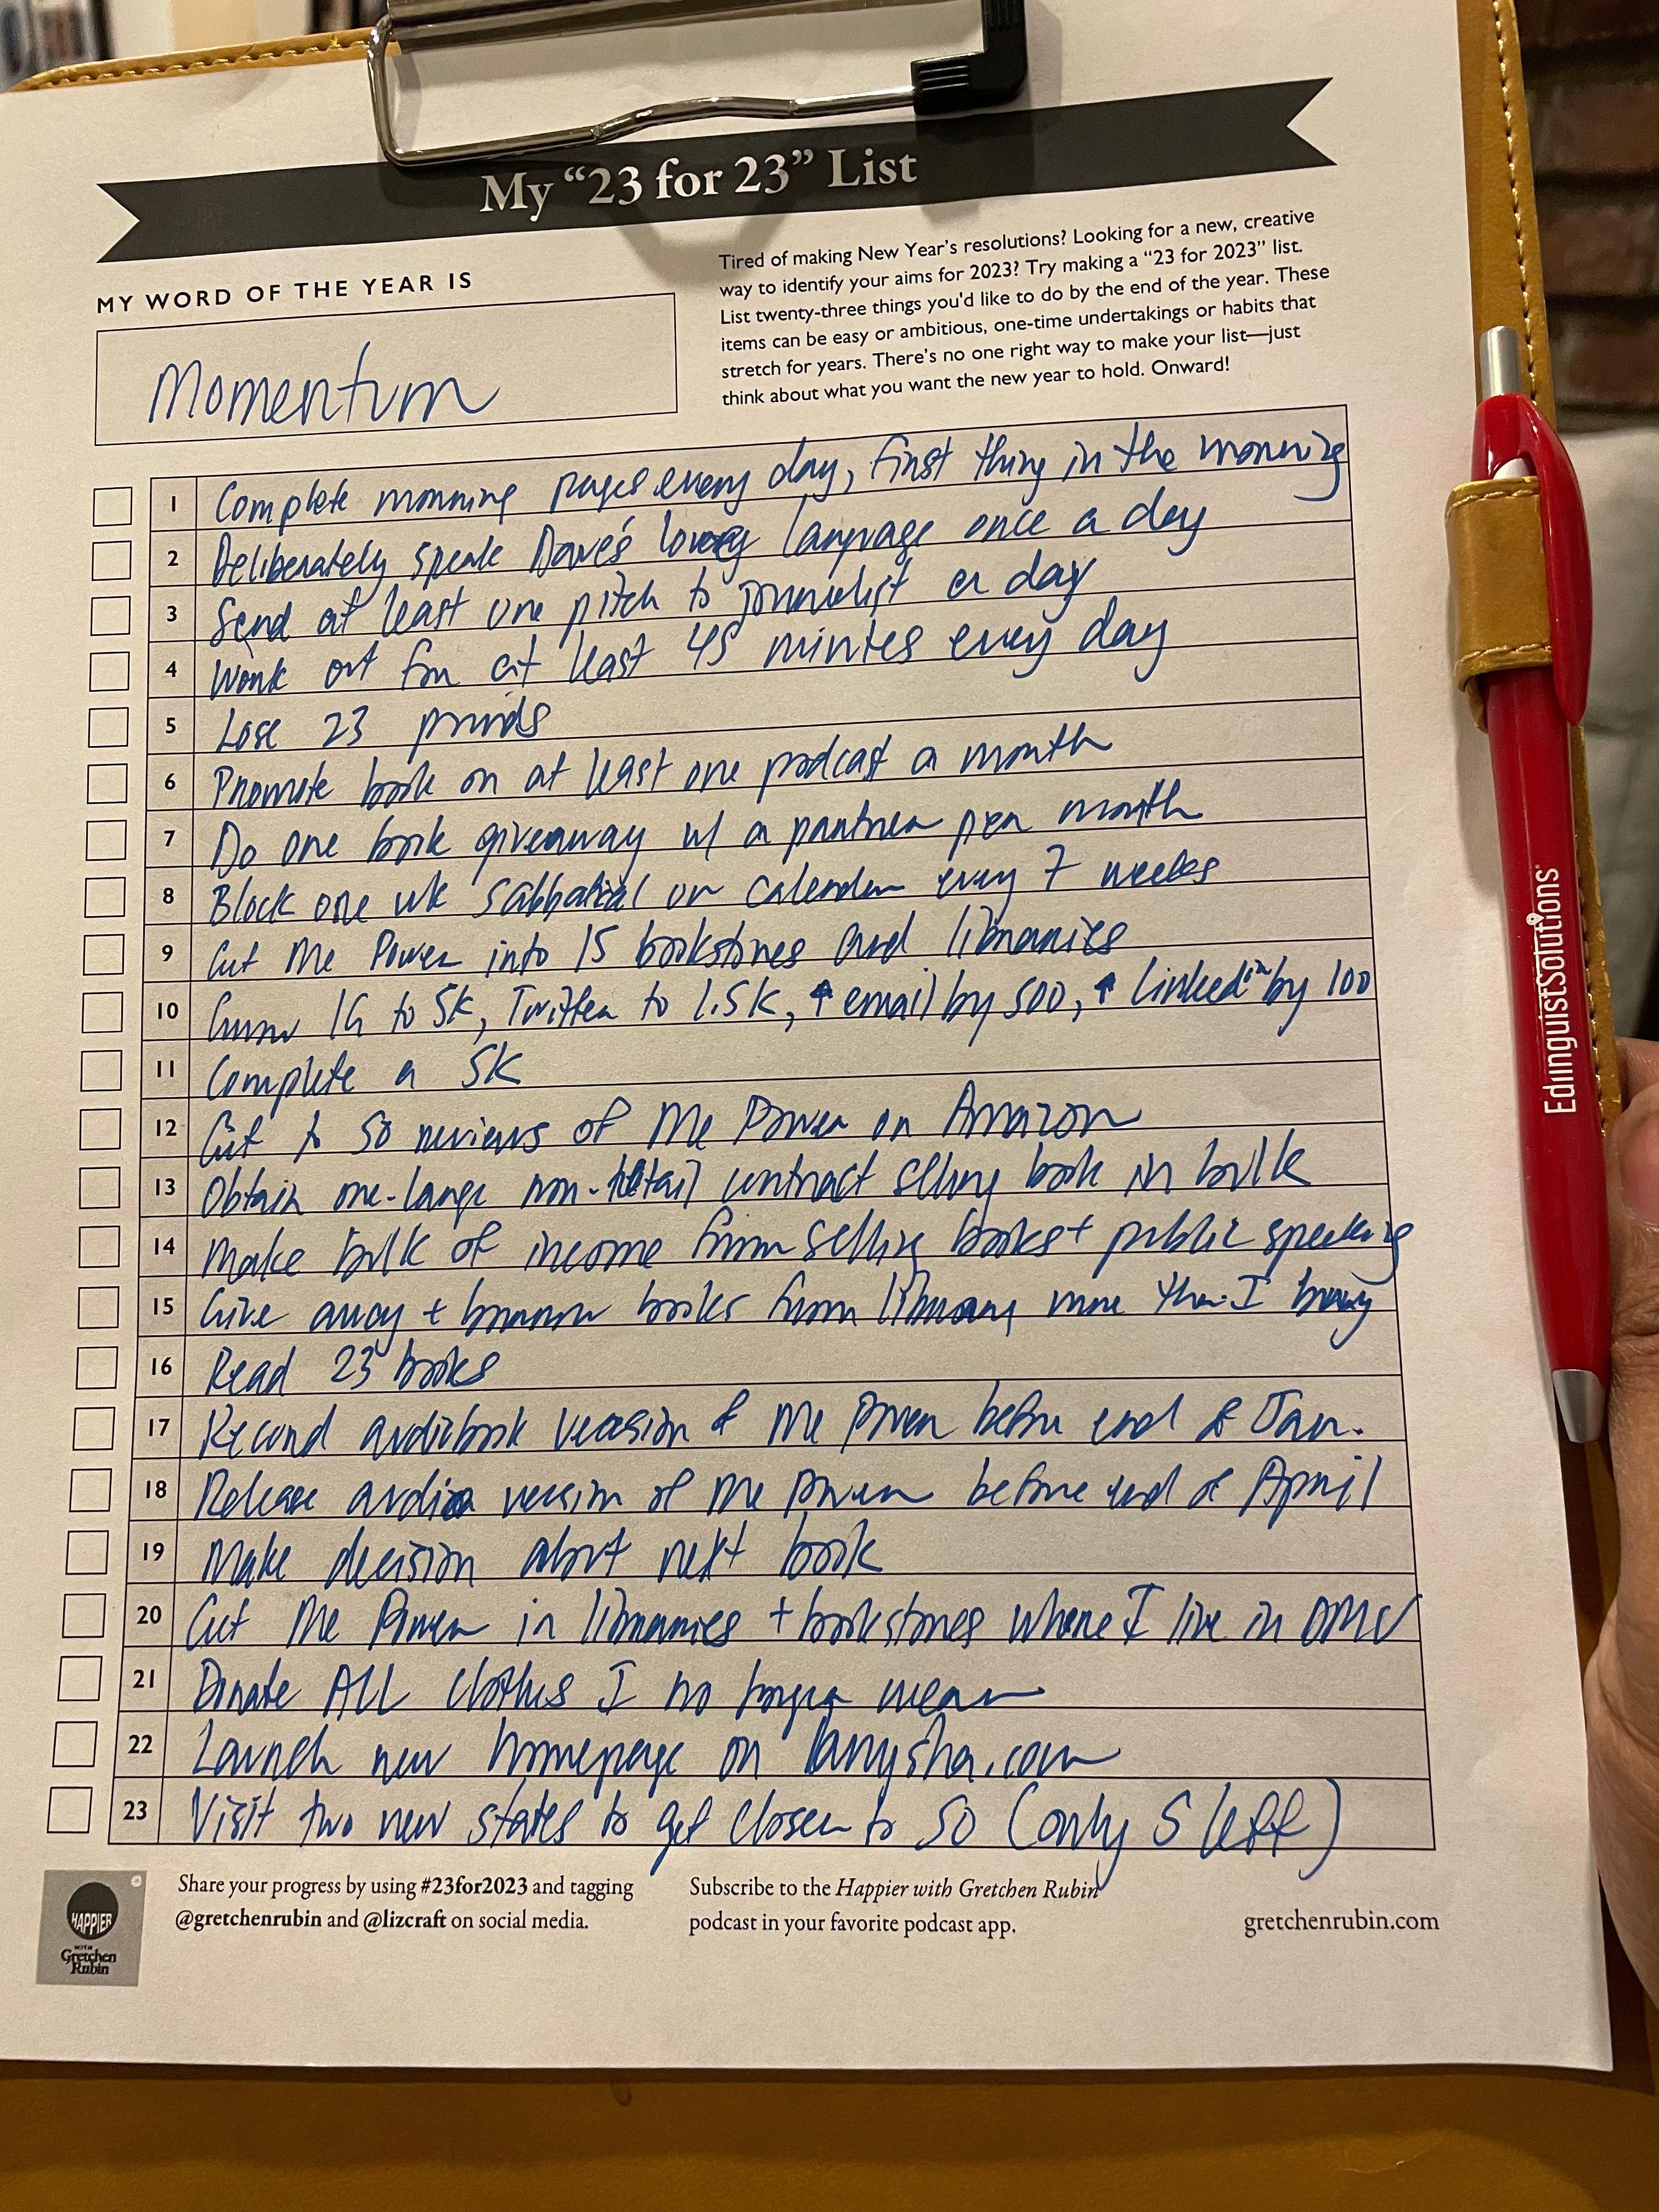 My “23 for 23” List
MY WORD OF THE YEAR IS
Momentum
Tired of making New Year's resolutions? Looking for a new, creative
way to identify your aims for 2023? Try making a “23 for 2023” list.
List twenty-three things you'd like to do by the end of the year. These
items can be easy or ambitious, one-time undertakings or habits that
stretch for years. There's no one right way to make your list—just
think about what you want the new year to hold. Onward!
1 Complete morning pages every day, first thing in the morning
2 Deliberately speak Dave's love language once a day
3 Send at least one pitch to journalist a day
4 Work out for at least 45 minutes every day
5 Lose 23 pounds
6 Promote book on at least one podcast a month
7 Do one book giveaway w/ a partner per month
8 Block one wk sabbatical on calendar every 7 weeks
9 Get Me Power into 15 bookstores and libraries
10 Grow IG to 5K, Twitter to 1.5K, ↑ email by 500, ↑ LinkedIn by 100
11 Complete a 5K
12 Get to 50 reviews of Me Power on Amazon
13 Obtain one-large non-retail contract selling book in bulk
14 Make bulk of income from selling books + public speaking
15 Give away + borrow books from library more than I buy
16 Read 23 books
17 Record audiobook version of Me Power before end of Jan.
18 Release audio version of Me Power before end of April
19 Make decision about next book
20 Get Me Power in libraries + bookstores where I live in DMV
21 Donate ALL clothes I no longer wear
22 Launch new homepage on
23 Visit two new states to get closer to 50 (only 5 left)
HAPPIER
WITH
Gretchen
Rubin
Share your progress by using #23for2023 and tagging
@gretchenrubin and @lizcraft on social media.
Subscribe to the Happier with Gretchen Rubin
podcast in your favorite podcast app.
gretchenrubin.com
EdlinguistSolutions